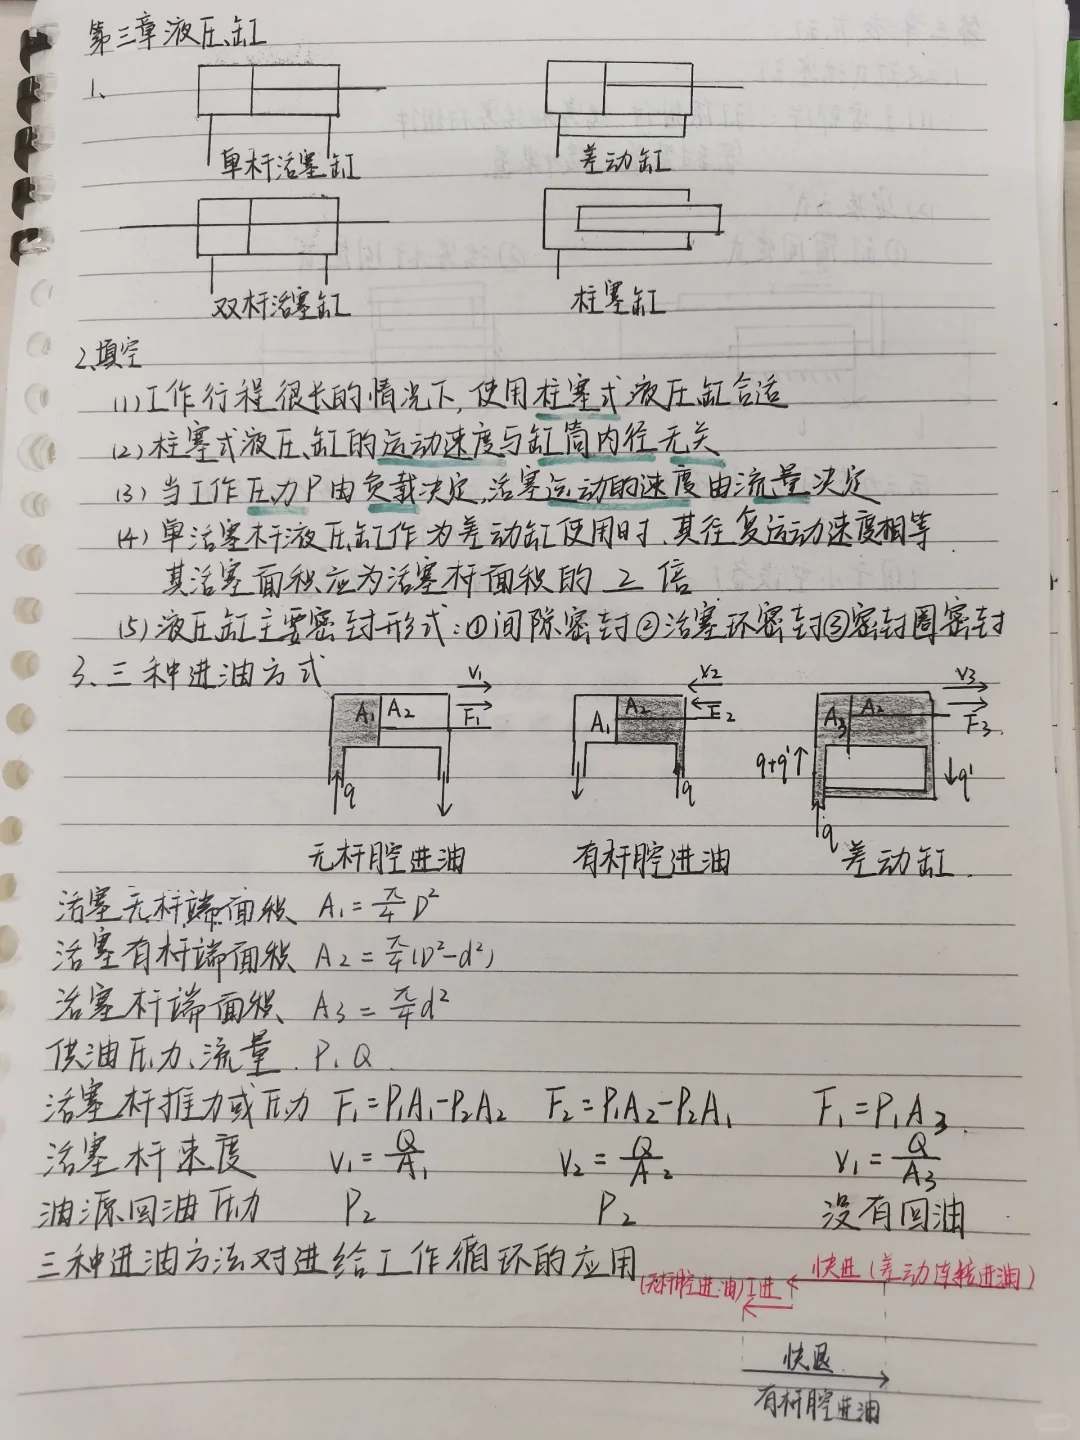 第三章液压缸
1、
单杆活塞缸 差动缸
双杆活塞缸 柱塞缸
2、填空
(1)工作行程很长的情况下,使用柱塞式液压缸合适
(2)柱塞式液压缸的运动速度与缸筒内径无关
(3)当工作压力P由负载决定,活塞运动的速度由流量决定
(4)单活塞杆液压缸作为差动缸使用时,其往复运动速度相等
其活塞面积应为活塞杆面积的 2 倍
(5)液压缸主要密封形式:①间隙密封②活塞环密封③密封圈密封
3、三种进油方式
V1 V2 V3
A1 A2 F1 A1 A2 F2 A3 A2 F3
q q q+q' q' q
无杆腔进油 有杆腔进油 差动缸.
活塞无杆端面积 A1=π/4 D²
活塞有杆端面积 A2=π/4(D²-d²)
活塞杆端面积 A3=π/4 d²
供油压力、流量. P、Q.
活塞杆推力或压力 F1=P1A1-P2A2 F2=P1A2-P2A1 F1=P1A3.
活塞杆速度 V1=Q/A1 V2=Q/A2 V1=Q/A3
油源回油压力 P2 P2 没有回油
三种进油方法对进给工作循环的应用
(无杆腔进油)工进 快进(差动连接进油)
快退
有杆腔进油